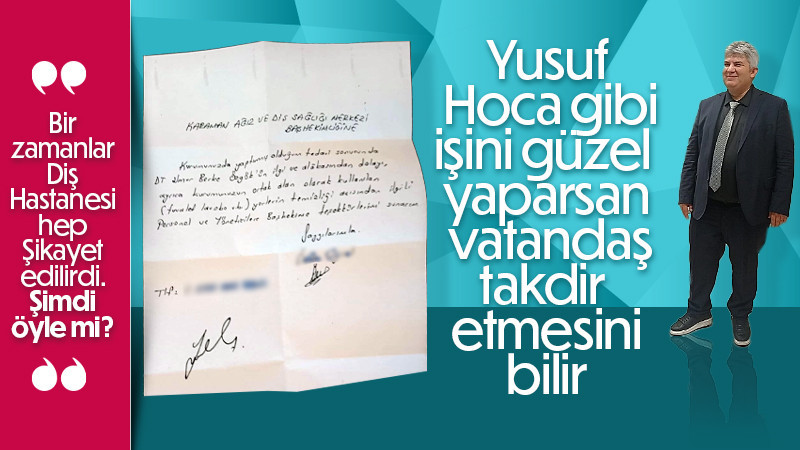 Bir
zamanlar
Diş
Hastanesi
hep
Şikayet
edilirdi.
Şimdi
öyle mi?
KARAMAN AĞIZ VE DİŞ SAĞLIĞI MERKEZİ
BAŞHEKİMLİĞİNE
Kurumunuzda yaptırmış olduğum tedavi sonucunda
DT. Berke ilgi ve alakasından dolayı,
ayrıca kurumunuzun ortak alan olarak kullanılan
(tuvalet lavabo vb.) yerlerin temizliği açısından ilgili
Personel ve Yöneticilere Başhekime teşekkürlerimi sunarım.
Saygılarımla.
Yusuf
Hoca gibi
işini güzel
yaparsan
vatandaş
takdir
etmesini
bilir